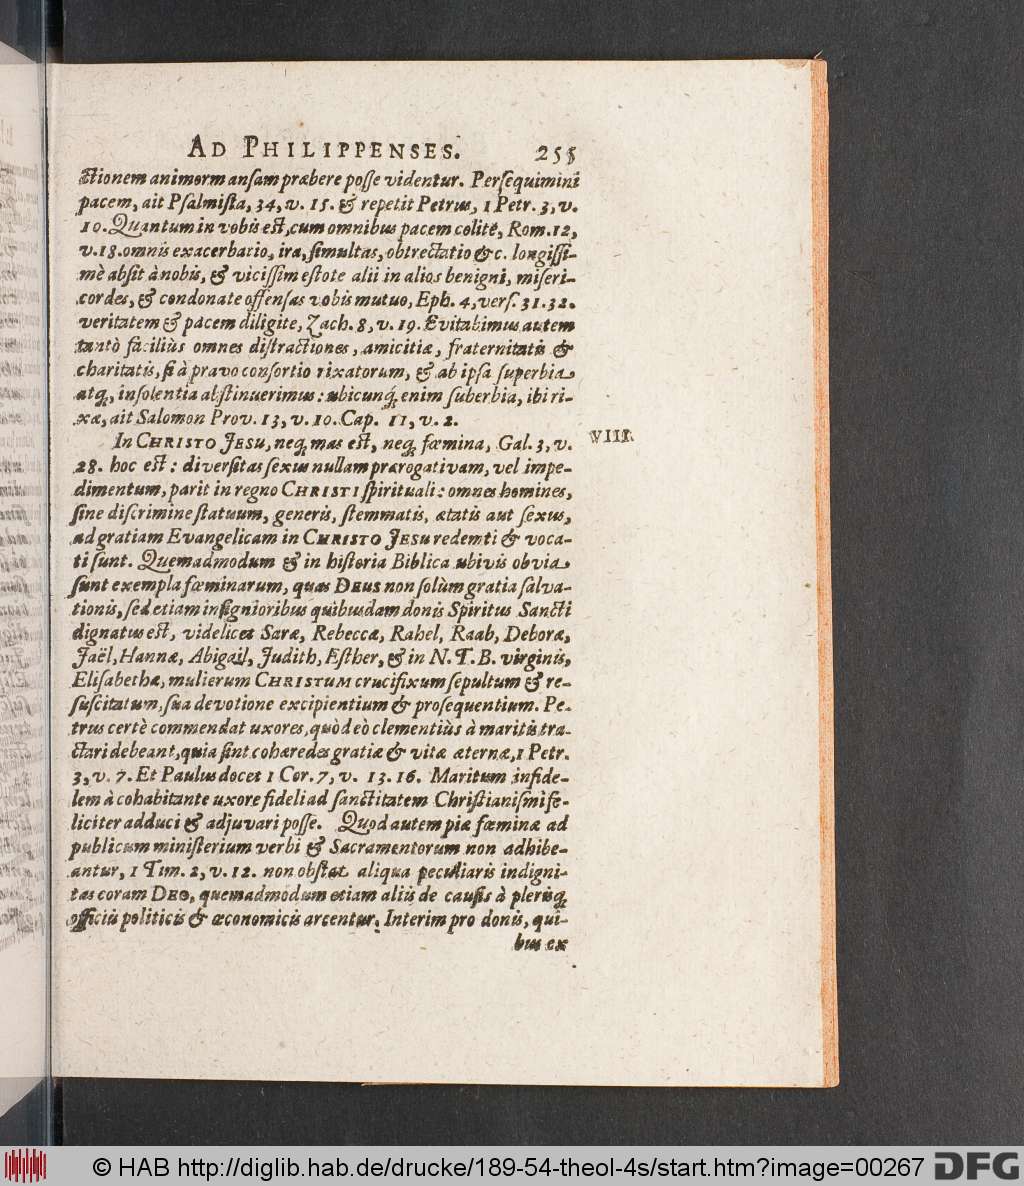 AD PHILIPPENSES. 255
ctionem animorm ansam præbere posse videntur. Persequimini
pacem, ait Psalmista, 34, v. 15. & repetit Petrus, 1 Petr. 3, v.
10. Quantum in vobis est, cum omnibus pacem colite, Rom. 12,
v. 18. omnis exacerbatio, ira, simultas, obtrectatio &c. longissi-
mè absit à nobis, & vicissim estote alii in alios benigni, miseri-
cordes, & condonate offensas vobis mutuo, Eph. 4, vers. 31. 32.
veritatem & pacem diligite, Zach. 8, v. 19. Evitabimus autem
tantò faciliùs omnes distractiones, amicitiæ, fraternitatis &
charitatis, si à pravo consortio rixatorum, & ab ipsa superbia
atq; insolentia abstinuerimus: ubicunq; enim suberbia, ibi ri-
xæ, ait Salomon Prov. 13, v. 10. Cap. 11, v. 2.
In CHRISTO JESU, neq; mas est, neq; fœmina, Gal. 3, v. VIII.
28. hoc est: diversitas sexus nullam prærogativam, vel impe-
dimentum, parit in regno CHRISTI spirituali: omnes homines,
sine discrimine statuum, generis, stemmatis, ætatis aut sexus,
ad gratiam Evangelicam in CHRISTO JESU redemti & voca-
ti sunt. Quemadmodum & in historia Biblica ubivis obvia
sunt exempla fœminarum, quas DEUS non solùm gratia salva-
tionis, sed etiam insignioribus quibusdam donis Spiritus Sancti
dignatus est, videlicet Saræ, Rebeccæ, Rahel, Raab, Deboræ,
Jaël, Hannæ, Abigail, Judith, Esther, & in N. T. B. virginis,
Elisabethæ, mulierum CHRISTUM crucifixum sepultum & re-
suscitatum, sua devotione excipientium & prosequentium. Pe-
trus certè commendat uxores, quòd eò clementiùs à maritis tra-
ctari debeant, quia sint cohæredes gratiæ & vitæ æternæ, 1 Petr.
3, v. 7. Et Paulus docet 1 Cor. 7, v. 13. 16. Maritum infide-
lem à cohabitante uxore fideli ad sanctitatem Christianismi fe-
liciter adduci & adjuvari posse. Quod autem piæ fœminæ ad
publicum ministerium verbi & Sacramentorum non adhibe-
antur, 1 Tim. 2, v. 12. non obstat aliqua peculiaris indigni-
tas coram DEO, quemadmodum etiam aliis de causis à plerisq;
officiis politicis & œconomicis arcentur. Interim pro donis, qui-
bus ex
© HAB http://diglib.hab.de/drucke/189-54-theol-4s/start.htm?image=00267 DFG